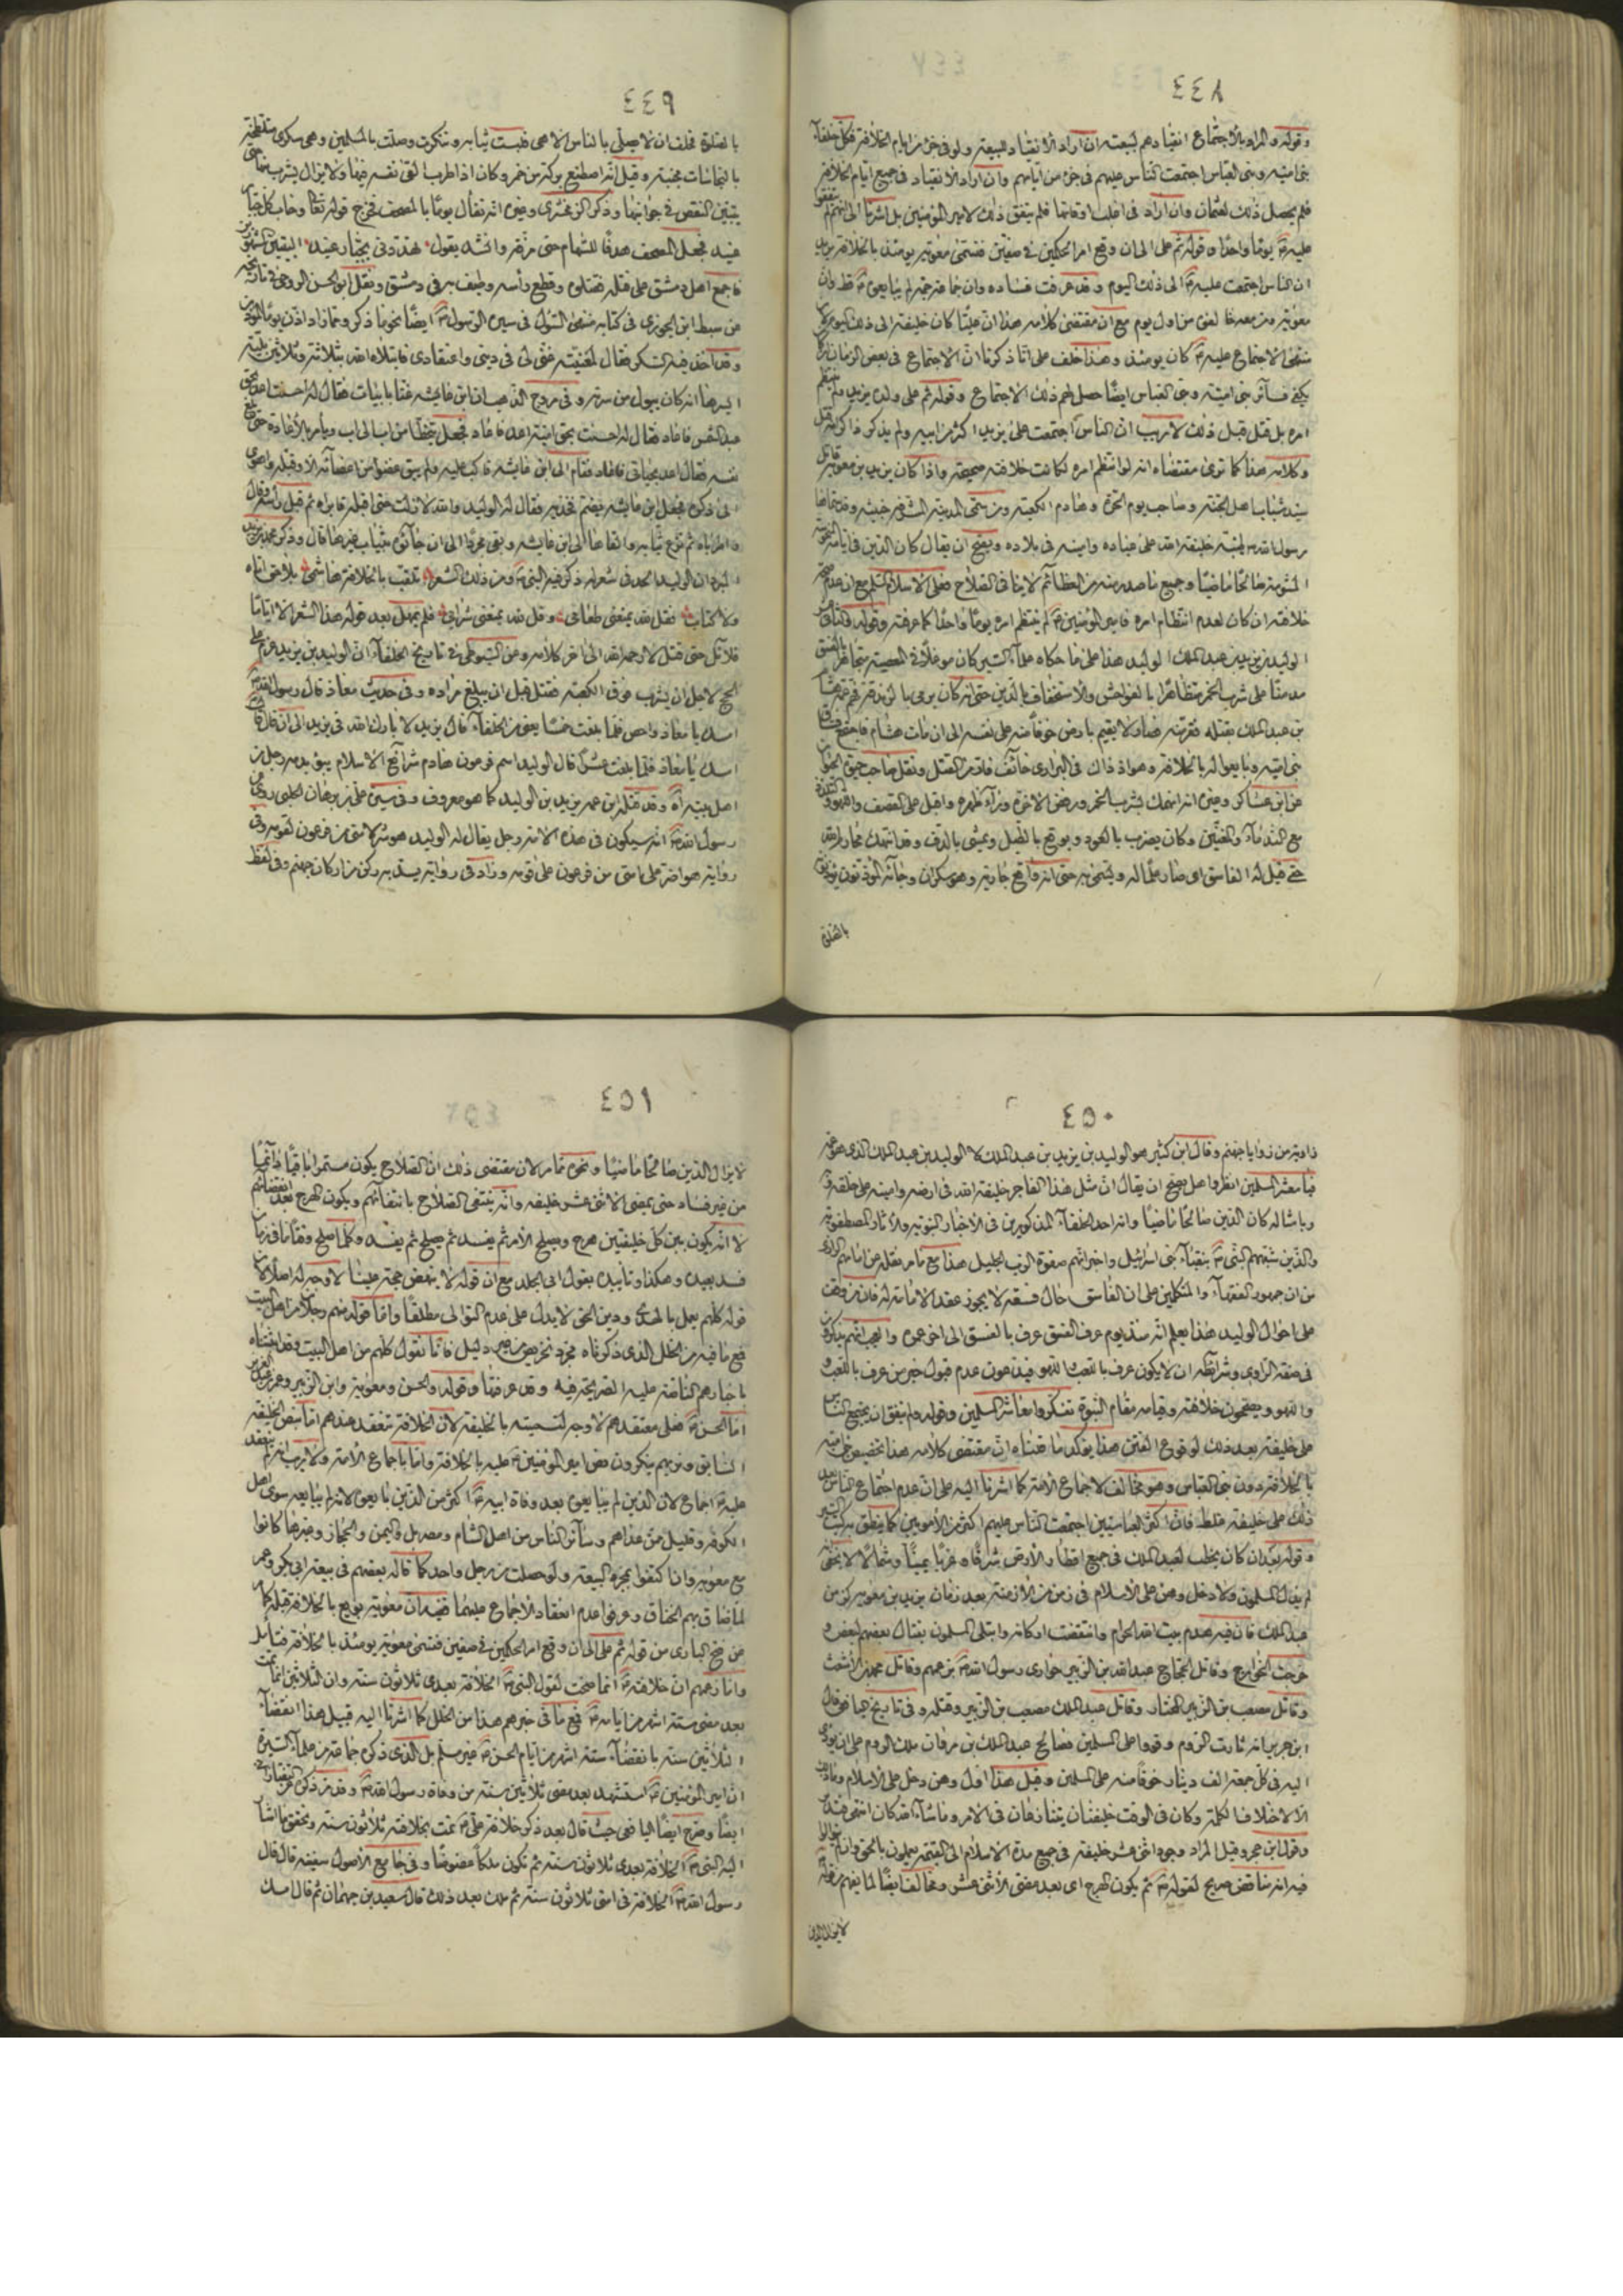 ٤٤٨
وقوله والمراد بالاجتماع انقيادهم لبيعته ان اراد الانقياد للبيعة ولو في جزء من ايام الخلافة فكل خلفاء
بني امية وبني العباس اجتمعت الناس عليهم في جزء من ايامهم وان اراد الانقياد في جميع ايام الخلافة
فلم يحصل ذلك لعثمان وان اراد في اغلب اوقاتها فلم يتفق ذلك لامير المؤمنين بل اشرنا الى انهم لم يتفقوا
عليه يوما واحدا وقوله ثم على الى ان وقع امر الحكمين في صفين فتسمى معوية يومئذ بالخلافة يريد
ان الناس اجتمعت عليه الى ذلك اليوم وقد عرفت فساده وان جماعة جمة لم يبايعوه قط وان
معوية ومن معه خالفوه من اول يوم مع ان مقتضى كلامه هذا ان عليا كان خليفة الى ذلك اليوم
الاجتماع عليه كان يومئذ وهذا خلف على انا ذكرنا ان الاجتماع في بعض الزمان
يكفي فسائر بني امية وبني العباس ايضا حصل لهم ذلك الاجتماع وقوله ثم على ولده يزيد ولم ينتظم
امره بل قتل قبل ذلك لا ريب ان الناس اجتمعت على يزيد اكثر من ابيه ولم يذكر
وكلامه هذا كما ترى مقتضاه انه لو انتظم امره لكانت خلافته صحيحة واذا كان يزيد بن معوية قاتل
سيد شباب اهل الجنة وصاحب يوم الحرة وهادم الكعبة ومن سمى المدينة المشرفة خبيثة وقد سماها
رسول الله طيبة خليفة الله على عباده وامينه في بلاده ويصح ان يقال كان الدين في ايامه
المشومة صالحا ماضيا وجميع ما صدر منه من العظائم لا ينافي الصلاح فعلى الاسلام السلم مع ان عدم صحة
خلافته ان كان لعدم انتظام امره فامير المؤمنين لم ينتظم امره يوما واحدا كما عرفت وقوله في الثاني عشر
الوليد بن يزيد بن عبد الملك الوليد هذا على ما حكاه علماء السير كان موغلا في المعصية متجاهرا بالفسق
مدمنا على شرب الخمر متظاهرا بالفواحش والاستخفاف بالدين حتى انه كان يرمى بالزندقة فهم هشام
بن عبد الملك بقتله ففر منه فصار لا يقيم بارض خوفا منه على نفسه الى ان مات هشام فاجتمع
بني امية وبايعوا له بالخلافة وهو اذ ذاك في البراري خائف فار من القتل ونقل صاحب حيوة الحيوان
عن ابن عساكر وغيره انه انهمك بشرب الخمر ورفض الاخرة وراء ظهره واقبل على القصف واللهو والتلذذ
مع الندماء والمغنين وكان يضرب بالعود ويوقع بالطبل ويمشي بالدف وقد انتهك محارم الله
حتى قيل له الفاسق اي صار علما له ويتميز به حتى انه واقع جارية وهو سكران وجائه المؤذنون يؤذنون
بالصلوة
٤٤٩
بالصلوة فحلف ان لا يصلي بالناس الا هي فلبست ثيابه وتنكرت وصلت بالمسلمين وهي سكرى متلطخة
بالنجاسات مجنبة وقيل انه اصطنع بركة من خمر وكان اذا طرب القى نفسه فيها ولا يزال يشرب منها حتى
يتبين النقص في جوانبها وذكر الزمخشري وغيره انه تفأل يوما بالمصحف فخرج قوله تعالى وخاب كل جبار
عنيد فجعل المصحف هدفا للسهام حتى مزقه وانشد يقول تهددوني بجبار عنيد البيتين المشهورين
فاجمع اهل دمشق على قتله فقتلوه وقطع راسه وطيف به في دمشق ونقل ابو الحسن الروحي في تاريخه
عن سبط ابن الجوزي في كتابه منتهى السؤل في سيرة الرسول ايضا نحو ما ذكر ومما زاد اذن يوما المؤذن
وقد اخذ فيه السكر فقال لمغنيته غنى لي في ديني واعتقادي فابتلاه الله بثلاثة وثلاثين بلية
ايسرها انه كان يبول من سرته وفي مروج الذهب ان ابن عايشة غنا بابيات فقال له احسنت اعد بحق
عبد الشمس فاعاد فقال له احسنت بحق امية اعد فاعاد فجعل يتخطا من اب الى اب ويأمر بالاعادة حتى بلغ
نفسه فقال اعد بحياتي فاعاد فقام الى ابن عايشة فاكب عليه ولم يبق عضوا من اعضائه الا وقبله واهوى
الى ذكره فجعل ابن عايشة يضم فخذيه فقال له الوليد والله لا زلت حتى اقبله فابداه ثم قبل راسه وقال
واطرباه ثم نزع ثيابه والقاها الى ابن عايشة وبقي عريانا الى ان جاؤه بثياب غيرها قال وذكر محمد بن يزيد
المبرد ان الوليد الحد في شعر له ذكر فيه النبي ومن ذلك الشعر تلعب بالخلافة هاشمي بلا وحي اتاه
ولا كتاب فقل لله يمنعني طعامي وقل لله يمنعني شرابي فلم يمهل بعد قوله هذا الشعر الا اياما
قلائل حتى قتل لا رحمه الله الى اخر كلامه وعن السيوطي في تاريخ الخلفاء ان الوليد بن يزيد عزم على
الحج لاجل ان يشرب فوق الكعبة فقتل قبل ان يبلغ مراده وفي حديث معاذ قال رسول الله
امسك يا معاذ واحص فلما بلغت خمسا يعني من الخلفاء قال يزيد لا بارك الله في يزيد الى ان قال
امسك يا معاذ فلما بلغت عشرا قال الوليد اسم فرعون هادم شرائع الاسلام يبوء بدمه رجل من
اهل بيته اه وقد قتله ابن عمه يزيد بن الوليد كما هو معروف وفي سيرة علي بن برهان الحلبي روى عن
رسول الله انه سيكون في هذه الامة رجل يقال له الوليد هو شر لامتي من فرعون لقومه وفي
رواية هو اضر على امتي من فرعون على قومه وزاد في رواية يسد به ركن من اركان جهنم وفي لفظ
٤٥٠
زاوية من زوايا جهنم وقال ابن كثير هو الوليد بن يزيد بن عبد الملك لا الوليد بن عبد الملك الذي هو عمه
فيا معشر المسلمين انظروا هل يصح ان يقال ان مثل هذا الفاجر خليفة الله في ارضه وامينه على خلقه
وبامثاله كان الدين صالحا ماضيا وانه احد الخلفاء المذكورين في الاخبار النبوية والاثار المصطفوية
والذين شبههم النبي بنقباء بني اسرائيل واخبر انهم صفوة الرب الجليل هذا مع ما مر نقله عن امامهم الرازي
من ان جمهور الفقهاء والمتكلمين على ان الفاسق حال فسقه لا يجوز عقد الامامة له فان من وقف
على احوال الوليد هذا يعلم انه منذ يوم عرف الفسق عرف بالفسق الى اخر عمره والعجب انهم يذكرون
في صفة الراوي وشرائطه ان لا يكون عرف باللعب واللهو فيدعون عدم قبول خبر من عرف باللعب
واللهو ويصححون خلافته وقيامه مقام النبوة تفكروا معاشر المسلمين وقوله ولم يتفق ان يجتمع الناس
على خليفة بعد ذلك لوقوع الفتن هذا يؤكد ما قلناه ان مقتضى كلامه هذا تخصيص بني امية
بالخلافة دون بني العباس وهو مخالف لاجماع الامة كما اشرنا اليه على ان عدم اجتماع الناس بعد
ذلك على خليفة غلط فان اكثر العباسيين اجتمعت الناس عليهم اكثر من الامويين كما ينطق به كتب السير
وقوله بعد ان كان يخطب لعبد الملك في جميع اقطار الارض شرقا وغربا يمينا وشمالا لا يخفى
لم يذل المسلمون ولا دخل وهن على الاسلام في زمن من الازمنة بعد زمان يزيد بن معوية كزمن
عبد الملك فان فيه هدم بيت الله الحرام وانتقضت اركانه وابتلى المسلمون بقتال بعضهم لبعض و
خرجت الخوارج وقاتل الحجاج عبد الله بن الزبير حواري رسول الله بن عمهم وقاتل محمد بن الاشعث
وقاتل مصعب بن الزبير المختار وقاتل عبد الملك مصعب بن الزبير وقتله وفي تاريخ
ابن جرير انه ثارت الروم وقووا على المسلمين فصالح عبد الملك بن مروان ملك الروم على ان يؤدي
اليه في كل جمعة الف دينار خوفا منه على المسلمين وقيل هذا اول وهن دخل على الاسلام وما ذاك
الا لاختلاف الكلمة وكان في الوقت خليفتان يتنازعان في الامر وما شاء الله كان انتهى
وقول ابن حجر وقيل المراد وجود اثني عشر خليفة في جميع مدة الاسلام الى القيمة يعملون بالحق وان لم يتوالوا
فيه انه مناقض صريح لقوله ثم يكون الهرج اي بعد مضى الاثنى عشر ومخالف ايضا لما يفهم من قوله
لا يزال الدين
٤٥١
لا يزال الدين صالحا ماضيا ونحوه مما مر لان مقتضى ذلك ان الصلاح يكون مستمرا باقيا دائما
من غير فساد حتى يمضى الاثنى عشر خليفة وانه ينتفى الصلاح بانتفائهم ويكون الهرج بعد انقضائهم
لا انه يكون بين كل خليفتين هرج ويصلح الامر ثم يفسد ثم يصلح ثم يفسد وكلما صلح وقتا ما
فسد بعيده وهكذا وتأييده بقول ابي الجلد مع ان قوله لا ينهض حجة علينا لا وجه له اصلا لان
قوله كلهم يعمل بالهدى ودين الحق لا يدل على عدم التوالي مطلقا واما قوله منهم رجلان من اهل البيت
فمع ما فيه من الخلل الذي ذكرناه مجرد تخرص من غير دليل فانا نقول كلهم من اهل البيت وقد اثبتناه
باخبارهم الناصة عليه الصريحة فيه وقد عرفتها وقوله والحسن ومعوية وابن الزبير وعمر بن عبد العزيز
اما الحسن فعلى معتقدهم لا وجه لتسميته بالخليفة لان الخلافة تنعقد عندهم اما بنص الخليفة
السابق وغيرهم ينكرون نص امير المؤمنين عليه بالخلافة واما باجماع الامة ولا ريب انه لم ينعقد
عليه اجماع لان الذين لم يبايعوه بعد وفاة ابيه اكثر من الذين بايعوه لانه لم يبايعه سوى اهل
الكوفة وقليل ممن عداهم وسائر الناس من اهل الشام ومصر بل واليمن والحجاز وغيرها كانوا
مع معوية وان اكتفوا بمجرد البيعة ولو حصلت من رجل واحد كما قاله بعضهم في بيعة ابي بكر وعمر
لما ضاق بهم الخناق وعرفوا عدم انعقاد الاجماع عليهما ففيه ان معوية بويع بالخلافة قبله كما
عن فتح الباري من قوله ثم على الى ان وقع امر الحكمين في صفين فتسمى معوية يومئذ بالخلافة فتامل
واما زعمهم ان خلافته انما صحت لقول النبي الخلافة بعدي ثلاثون سنة وان الثلاثين انما تمت
بعد مضى ستة اشهر من ايامه فمع ما في خبرهم هذا من الخلل كما اشرنا اليه قبيل هذا انقضاء
الثلاثين سنة بانقضاء ستة اشهر من ايام الحسن غير مسلم بل الذي ذكره جماعة من علماء السيرة
ان امير المؤمنين استشهد بعد مضى ثلاثين سنة من وفاة رسول الله وقد مر ذكره
ايضا وصرح ايضا اليافعي حيث قال بعد ذكر خلافة علي تمت بخلافته ثلاثون سنة وتحقق ما اشار
اليه النبي الخلافة بعدي ثلاثون سنة ثم تكون ملكا عضوضا وفي جامع الاصول سفينة قال قال
رسول الله الخلافة في امتي ثلاثون سنة ثم ملك بعد ذلك قال سعيد بن جهمان ثم قال امسك